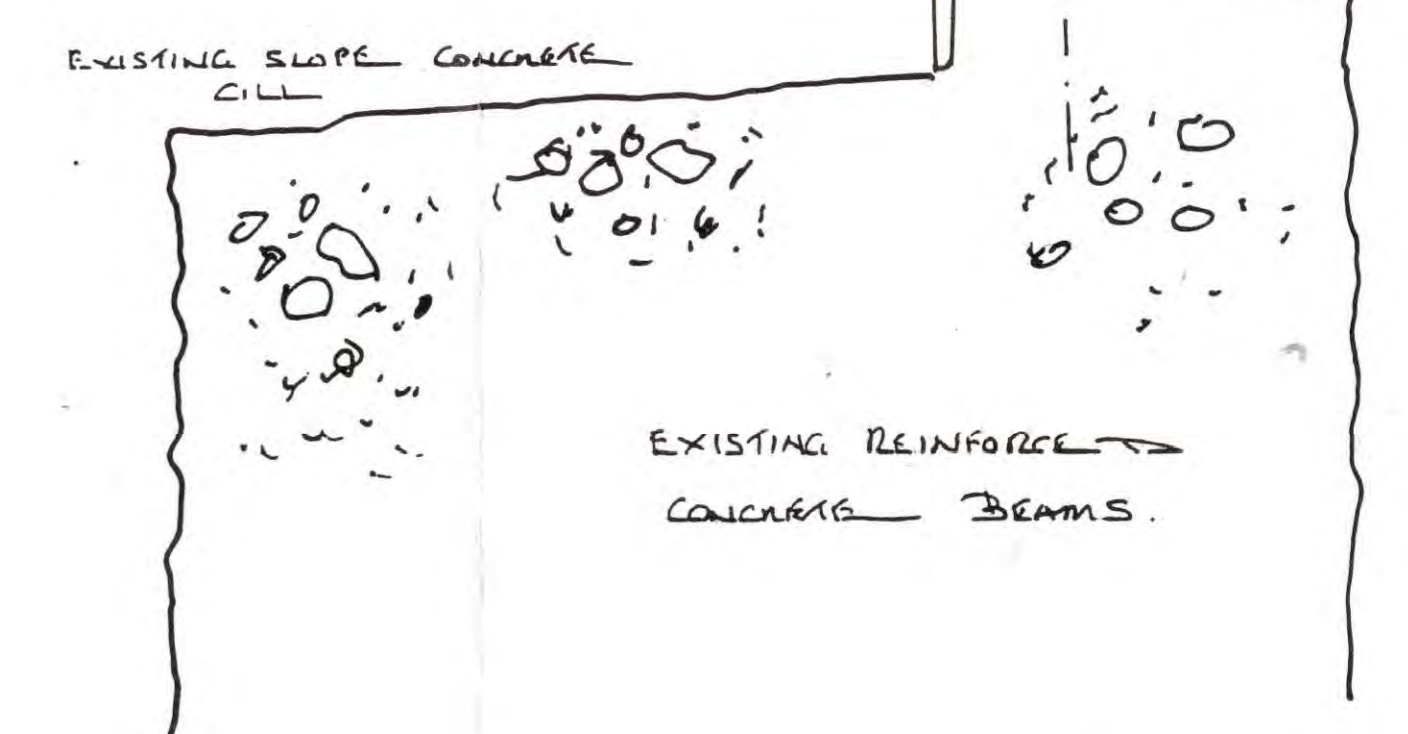 EXISTING SLOPE CONCRETE
CILL
EXISTING REINFORCED
CONCRETE BEAMS.